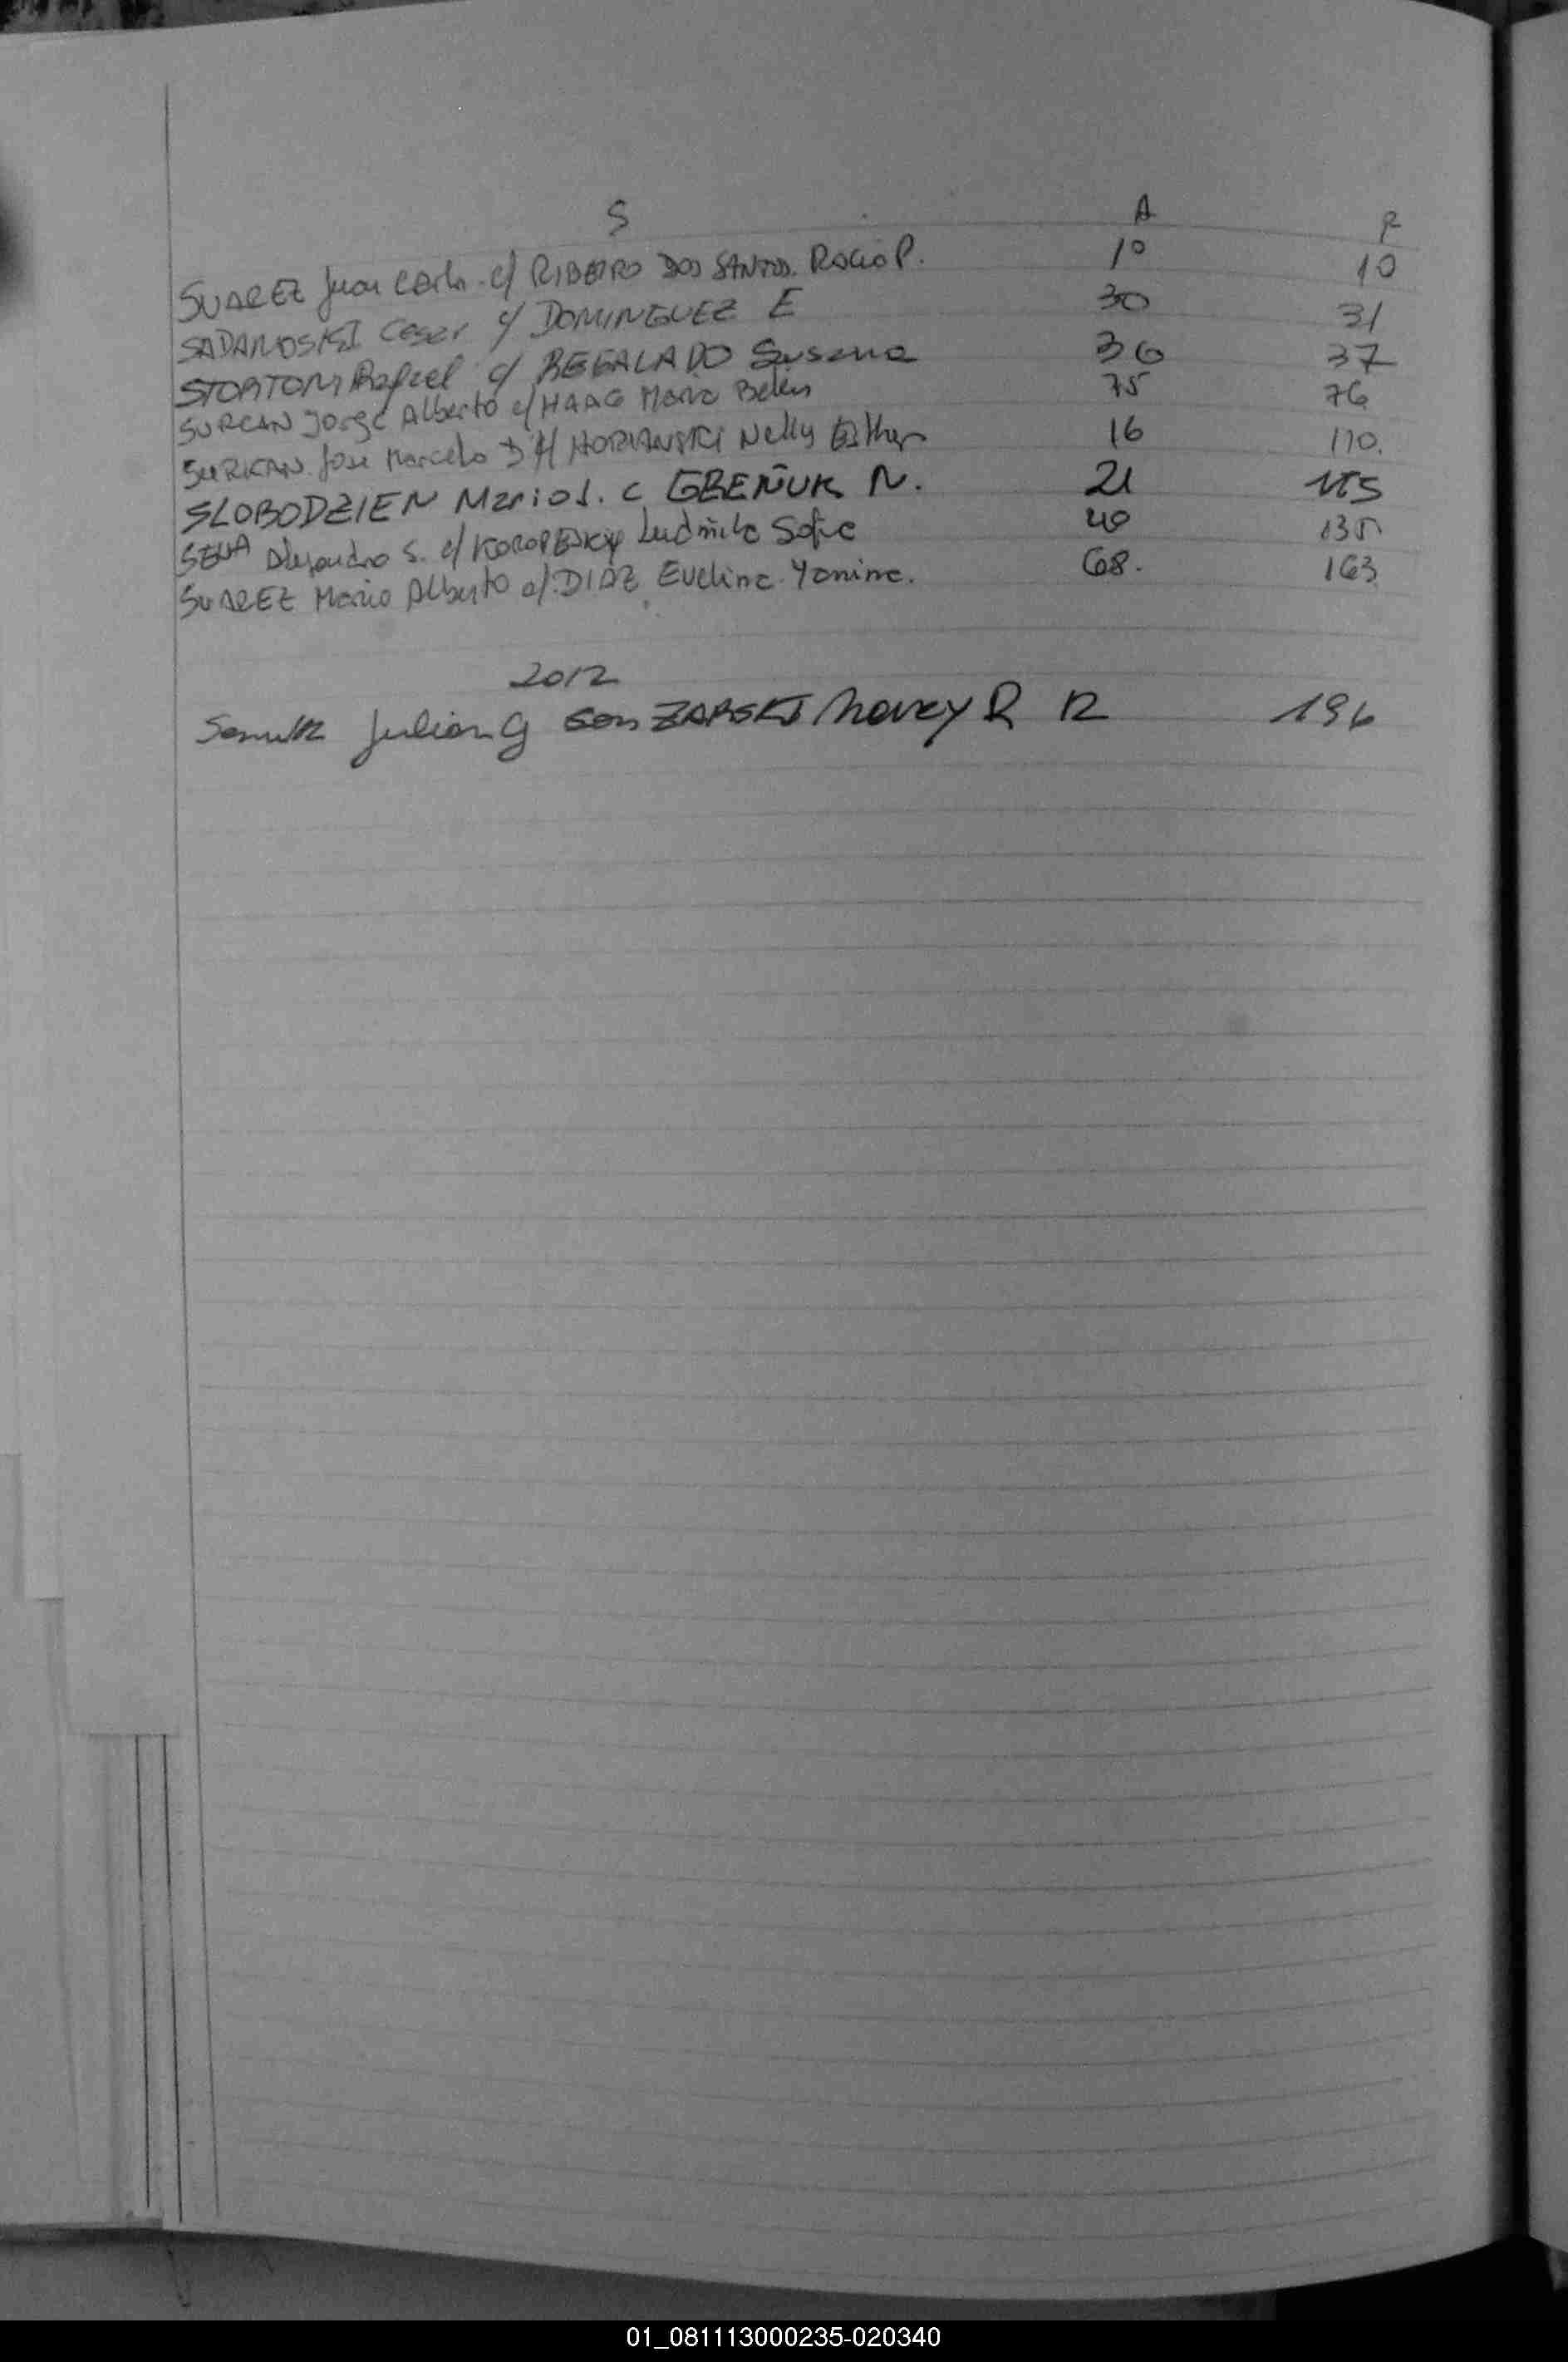 S A F
SUAREZ Juan Carlos c/ RIBEIRO DOS SANTOS. Rocio P. 10 10
SADANOSKI Cesar c/ DOMINGUEZ E 30 31
STORTONI Rafael c/ REGALADO Susana 36 37
SURCAN Jorge Alberto c/ HAAG Maria Belen 75 76
SURKAN Jose Marcelo D c/ HORIANSKI Nelly Esther 16 110.
SLOBODZIEN Mario J. c GREÑUK N. 21 115
SENA Alejandro S. c/ KOROPESKY Ludmila Sofia 40 135
SUAREZ Mario Alberto c/ DIAZ Evelina Yanina. 68. 163
2012
Julian G con ZARSKI Nancy R 12 196
01_081113000235-020340